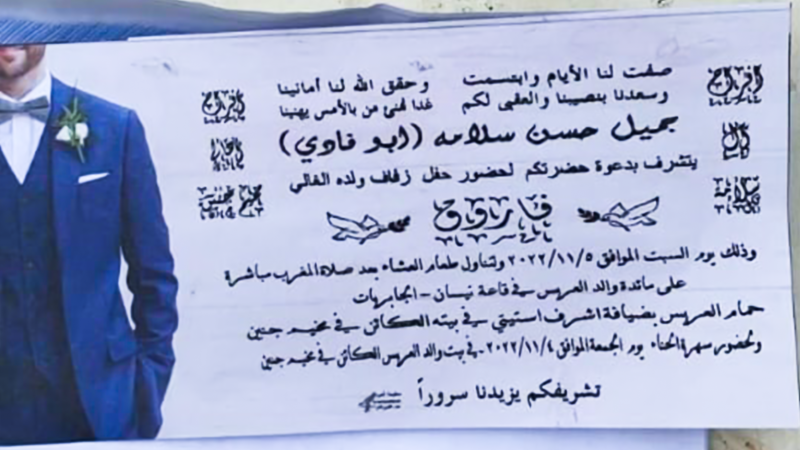 صفت لنا الأيام وابتسمت وحقق الله لنا أمانينا
وسعدنا بنصيبنا والعقبى لكم غدا نحن من بالأمس يهنينا
افراح
آل
سلامة
افراح
مخيم جنين
جميل حسن سلامه (ابو فادي)
يتشرف بدعوة حضرتكم لحضور حفل زفاف ولده الغالي
فاروق
وذلك يوم السبت الموافق ٢٠٢٢/١١/٥ ولتناول طعام العشاء بعد صلاة المغرب مباشرة
على مائدة والد العريس في قاعة نيسان - الجابريات
حمام العريس بضيافة اشرف استيتي في بيته الكائن في مخيم جنين
ولحضور سهرة الحناء يوم الجمعة الموافق ٢٠٢٢/١١/٤ - في بيت والد العريس الكائن في مخيم جنين
تشريفكم يزيدنا سروراً